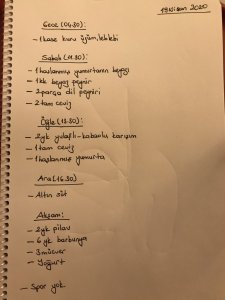 19 Nisan 2020
Gece (04.30):
- 1 kase kuru üzüm, leblebi
Sabah (11.30):
- 1 haşlanmış yumurtanın beyazı
- 1 kk beyaz peynir
- 2 parça dil peyniri
- 2 tam ceviz
Öğle (13.30):
- 2 yk yulaflı - kabaklı karışım
- 1 tam ceviz
- 1 haşlanmış yumurta
Ara (16.30)
- Altın süt
Akşam:
- 2 yk pilav
- 6 yk barbunya
- 3 mücver
- Yoğurt
- Spor yok.